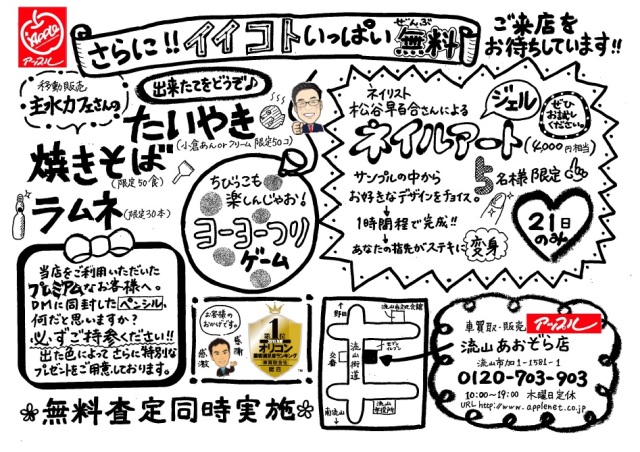 Apple
アップル
さらに!! イイコトいっぱい 無料
ぜんぶ
ご来店を
お待ちしています!!
移動販売
主水カフェさんの
出来たてをどうぞ♪
たいやき
(小倉あんorクリーム 限定50コ)
焼きそば
(限定50食)
ラムネ(限定30本)
ちびっこも
楽しんじゃお!
ヨーヨーつり
ゲーム
ネイリスト
松谷早百合さんによる
ジェル
ネイルアート
(4,000円相当)
ぜひ
お試し
ください。
サンプルの中から
お好きなデザインをチョイス。
↓
1時間程で完成!!
↓
あなたの指先がステキに変身
5名様限定
21日
のみ
当店をご利用いただいた
プレミアムなお客様へ。
DMに同封したペンシル、
何だと思いますか?
必ずご持参ください!!
出た色によってさらに特別な
プレゼントをご用意しております。
お客様の
おかげです。
感謝
感激
第1位
オリコン
顧客満足度ランキング
車買取会社
総合
↑
野田
流山街道
交番
南流山
↓
流山
市役所
車買取・販売 アップル
流山あおぞら店
流山市加1-1581-1
0120-903-903
10:00~19:00 木曜日定休
URL http://www.applenet.co.jp
❀無料査定同時実施❀